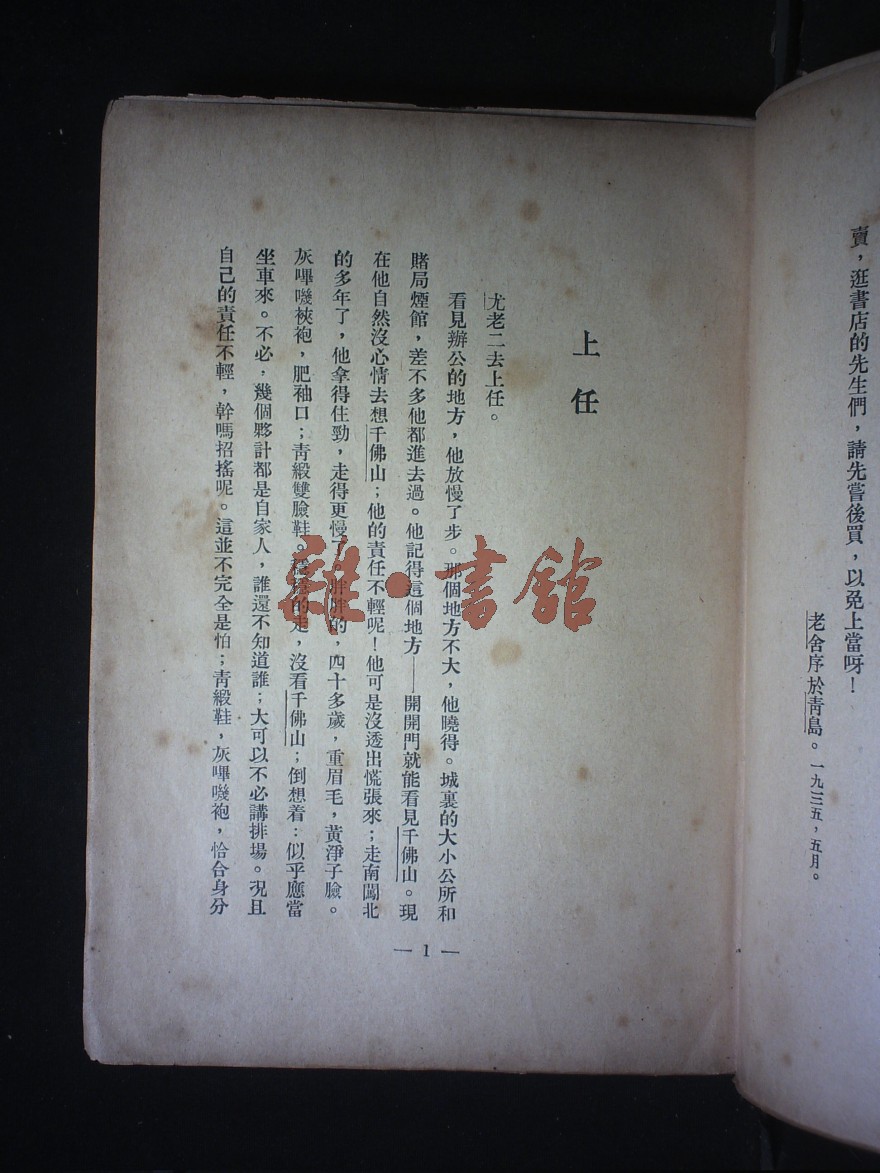 賣，逛書店的先生們，請先嘗後買，以免上當呀！
老舍序於青島。一九三五，五月。
上任
尤老二去上任。
看見辦公的地方，他放慢了步。那個地方不大，他曉得。城裏的大小公所和
賭局煙館，差不多他都進去過。他記得這個地方——開開門就能看見千佛山。現
在他自然沒心情去想千佛山；他的責任不輕呢！他可是沒透出慌張來；走南闖北
的多年了，他拿得住勁，走得更慢了。胖胖的，四十多歲，重眉毛，黃淨子臉。
灰嗶嘰裌袍，肥袖口；青緞雙臉鞋。穩穩的走，沒看千佛山；倒想着：似乎應當
坐車來。不必，幾個夥計都是自家人，誰還不知道誰；大可以不必講排場。況且
自己的責任不輕，幹嗎招搖呢。這並不完全是怕；青緞鞋，灰嗶嘰袍，恰合身分
— 1 —
雜·書館